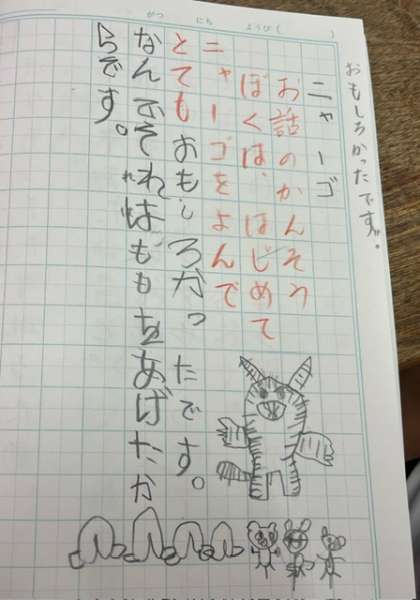 がつ にち ようび( )
おもしろかったです。
ニャーゴ
お話のかんそう
ぼくは、はじめて
ニャーゴをよんで
とてもおもしろかったです。
なんでそれはももをあげたか
らです。